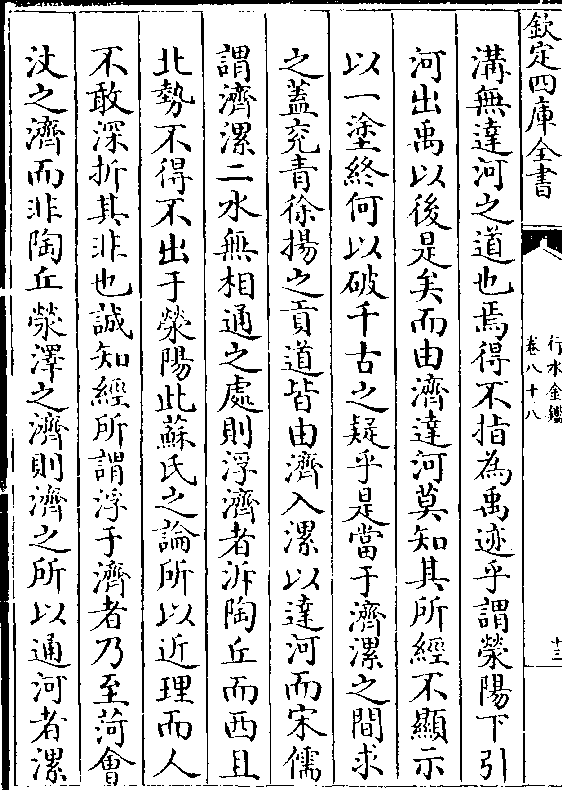 欽定四庫全書
行水金鑑
卷八十八
十三
溝無達河之道也焉得不指為禹迹乎謂滎陽下引
河出禹以後是矣而由濟達河莫知其所經不顯示
以一塗終何以破千古之疑乎是當于濟漯之間求
之蓋兖青徐揚之貢道皆由濟入漯以達河而宋儒
謂濟漯二水無相通之處則浮濟者泝陶丘而西且
北勢不得不出于滎陽此蘇氏之論所以近理而人
不敢深折其非也誠知經所謂浮于濟者乃至菏會
汶之濟而非陶丘滎澤之濟則濟之所以通河者漯